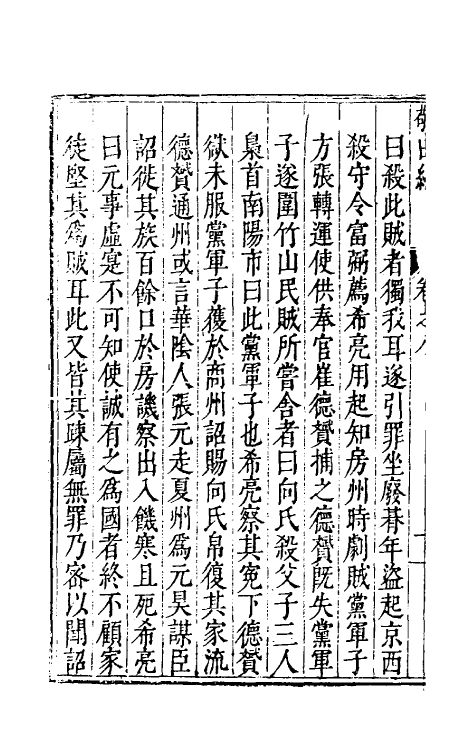 曰殺此賊者獨我耳遂引罪坐廢朞年盜起京西
殺守令富弼薦希亮用起知房州時劇賊黨軍子
方張轉運使供奉官崔德贇捕之德贇既失黨軍
子遂圍竹山民賊所嘗舍者曰向氏殺父子三人
梟首南陽市曰此黨軍子也希亮察其冤下德贇
獄未服黨軍子獲於商州詔賜向氏帛復其家流
德贇通州或言華陰人張元走夏州為元昊謀臣
詔徙其族百餘口於房譏察出入饑寒且死希亮
曰元事虛寔不可知使誠有之為國者終不顧家
徒堅其為賊耳此又皆其疎屬無罪乃密以聞詔